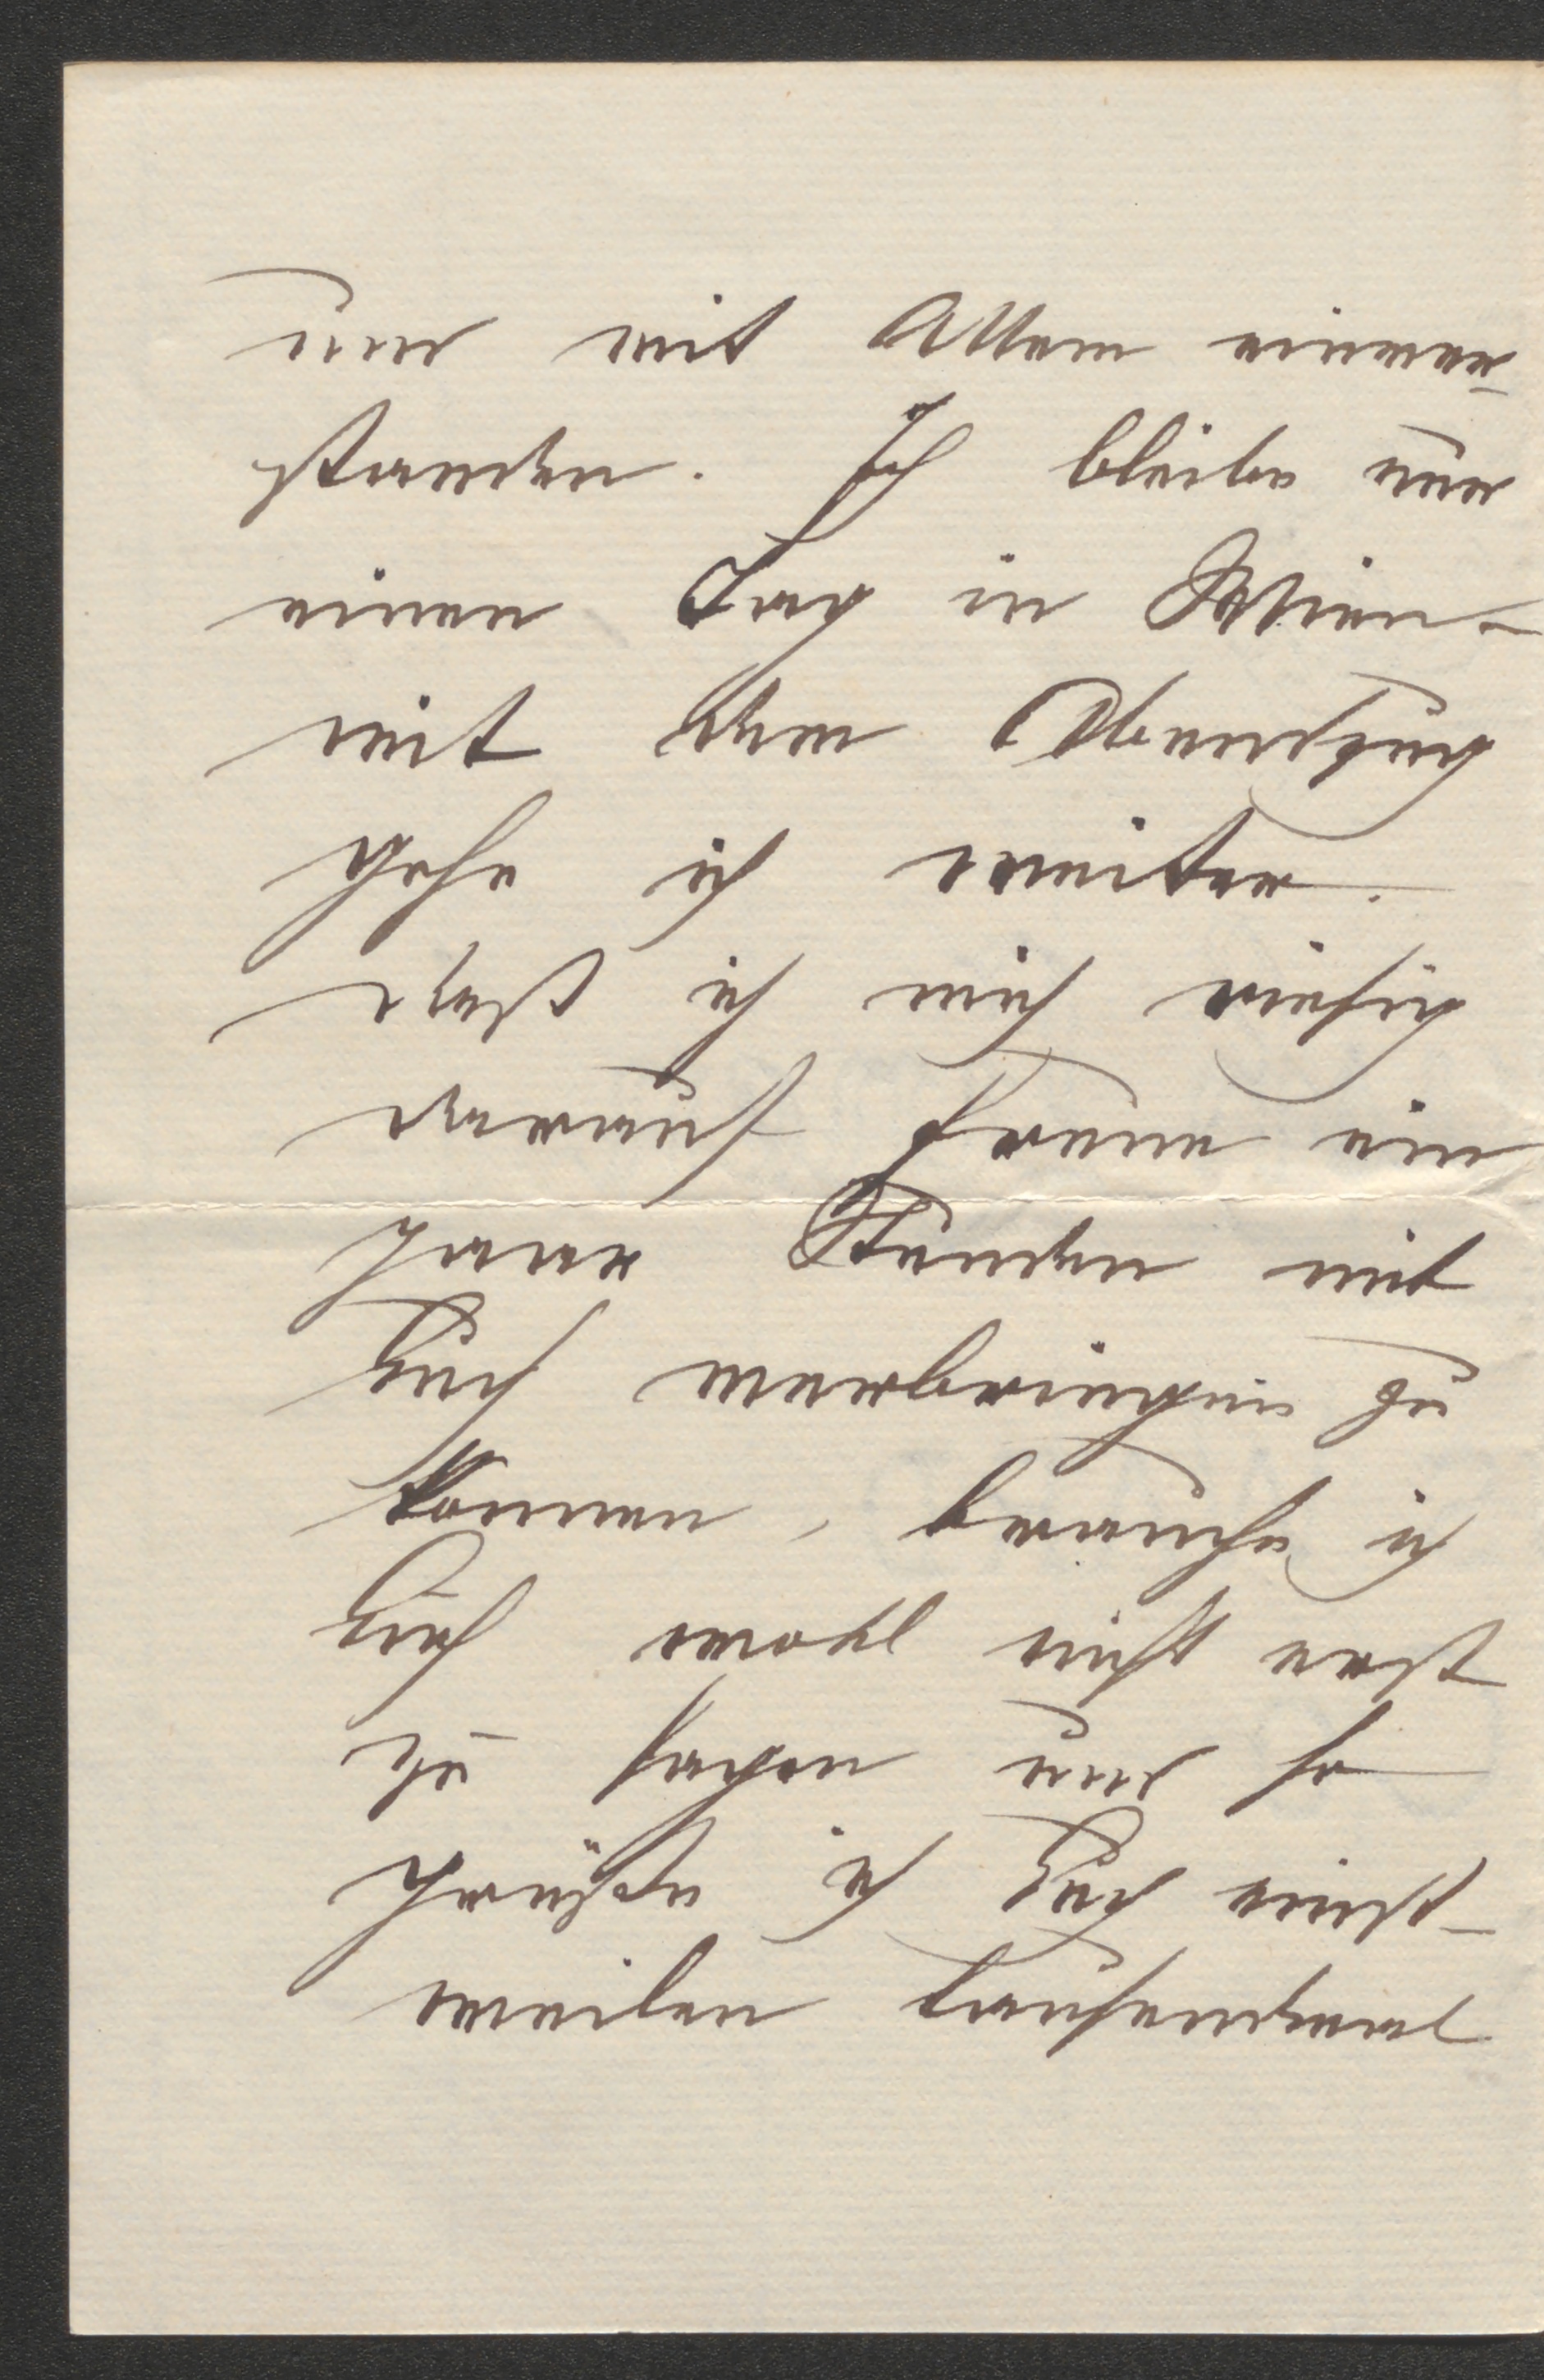 und mit Allem einver-
standen. Ich bleibe nur
einen Tag in Wien –
mit dem Abendzug
gehe ich weiter.
Daß ich mich riesig
darauf freue ein
paar Stunden mit
Euch verbringen zu
können, brauche ich
Euch wohl nicht erst
zu sagen und so
grüße ich Euch einst-
weilen tausendmal